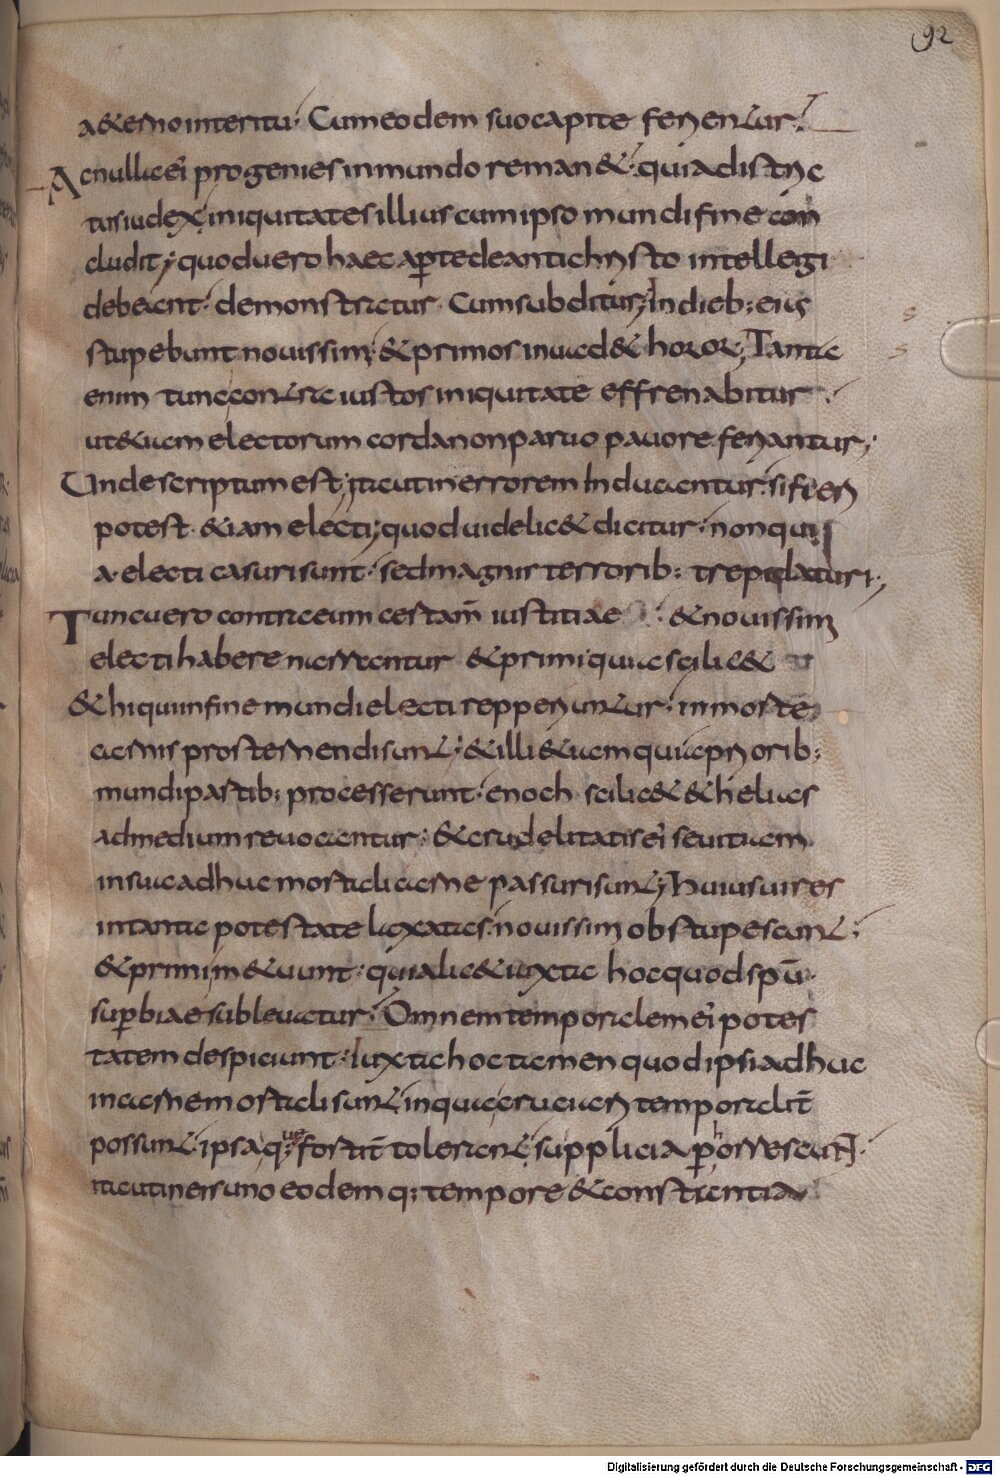 92
a&erno interitu. Cum eodem suo capite ferientur.
Ac nulla ei progenies in mundo reman&. quia distric
tus iudex iniquitates illius cum ipso mundi fine con
cludit; quod uero haec apte de antichristo intellegi
debeant. demonstratur. Cum subditur; In dieb; eius
stupebunt nouissimi; & primos inuad& horor; Tanta
enim tunc contra iustos iniquitate effrenabitur.
ut &iam electorum corda non paruo pauore feriantur;
Unde scriptum est; ita ut in errorem Inducantur. si fieri
potest. &iam electi; quod uidelic& dicitur. non qui
a electi casuri sunt. sed magnis terrorib; trepidaturi;
Tunc uero contra eum certam iustitiae & nouissimi
electi habere narrantur & primi. quia scilic&
& hi qui in fine mundi electi repperiuntur. in morte
carnis prosternendi sunt; & illi &iam qui a priorib;
mundi partib; processerunt. enoch scilic& & helias
ad medium reuocantur. & crudelitatis ei seuitiam
in sua adhuc mortali carne passuri sunt; Huius uires
in tanta potestate laxatas. nouissimi obstupescunt;
& primi m&uunt. quia lic& iuxta hoc quod spu
superbiae subleuatur. Omnem temporalem ei potes
tatem despiciunt. Iuxta hoc tamen quod ipsi adhuc
in carne mortali sunt. in qua cruciari temporalit
possunt. ipsa q; que fortit tolerant. supplicia phorrescunt.
ita ut in eis uno eodemq; tempore & constantia
Digitalisierung gefördert durch die Deutsche Forschungsgemeinschaft - DFG